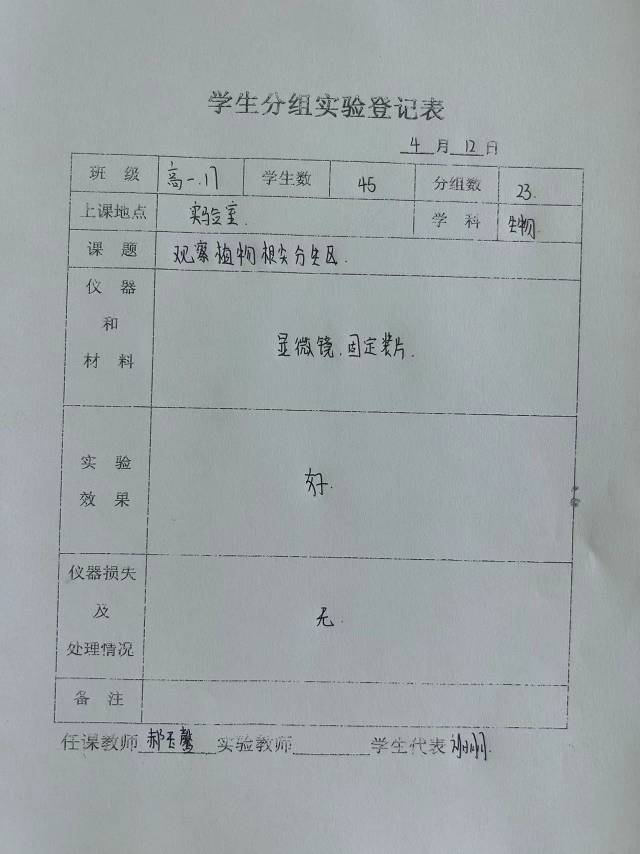 学生分组实验登记表
4月12日
班级 高一.17 学生数 45 分组数 23.
上课地点 实验室. 学科 生物.
课题 观察植物根尖分生区.
仪器
和
材料
显微镜.固定装片.
实验
效果
好.
仪器损失
及
处理情况
无.
备注
任课教师 郝玉馨 实验教师 学生代表